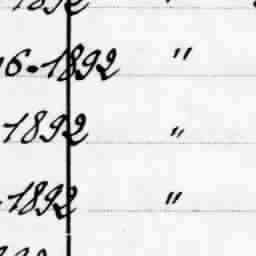 6-1892 "
1892 "
-1892 "